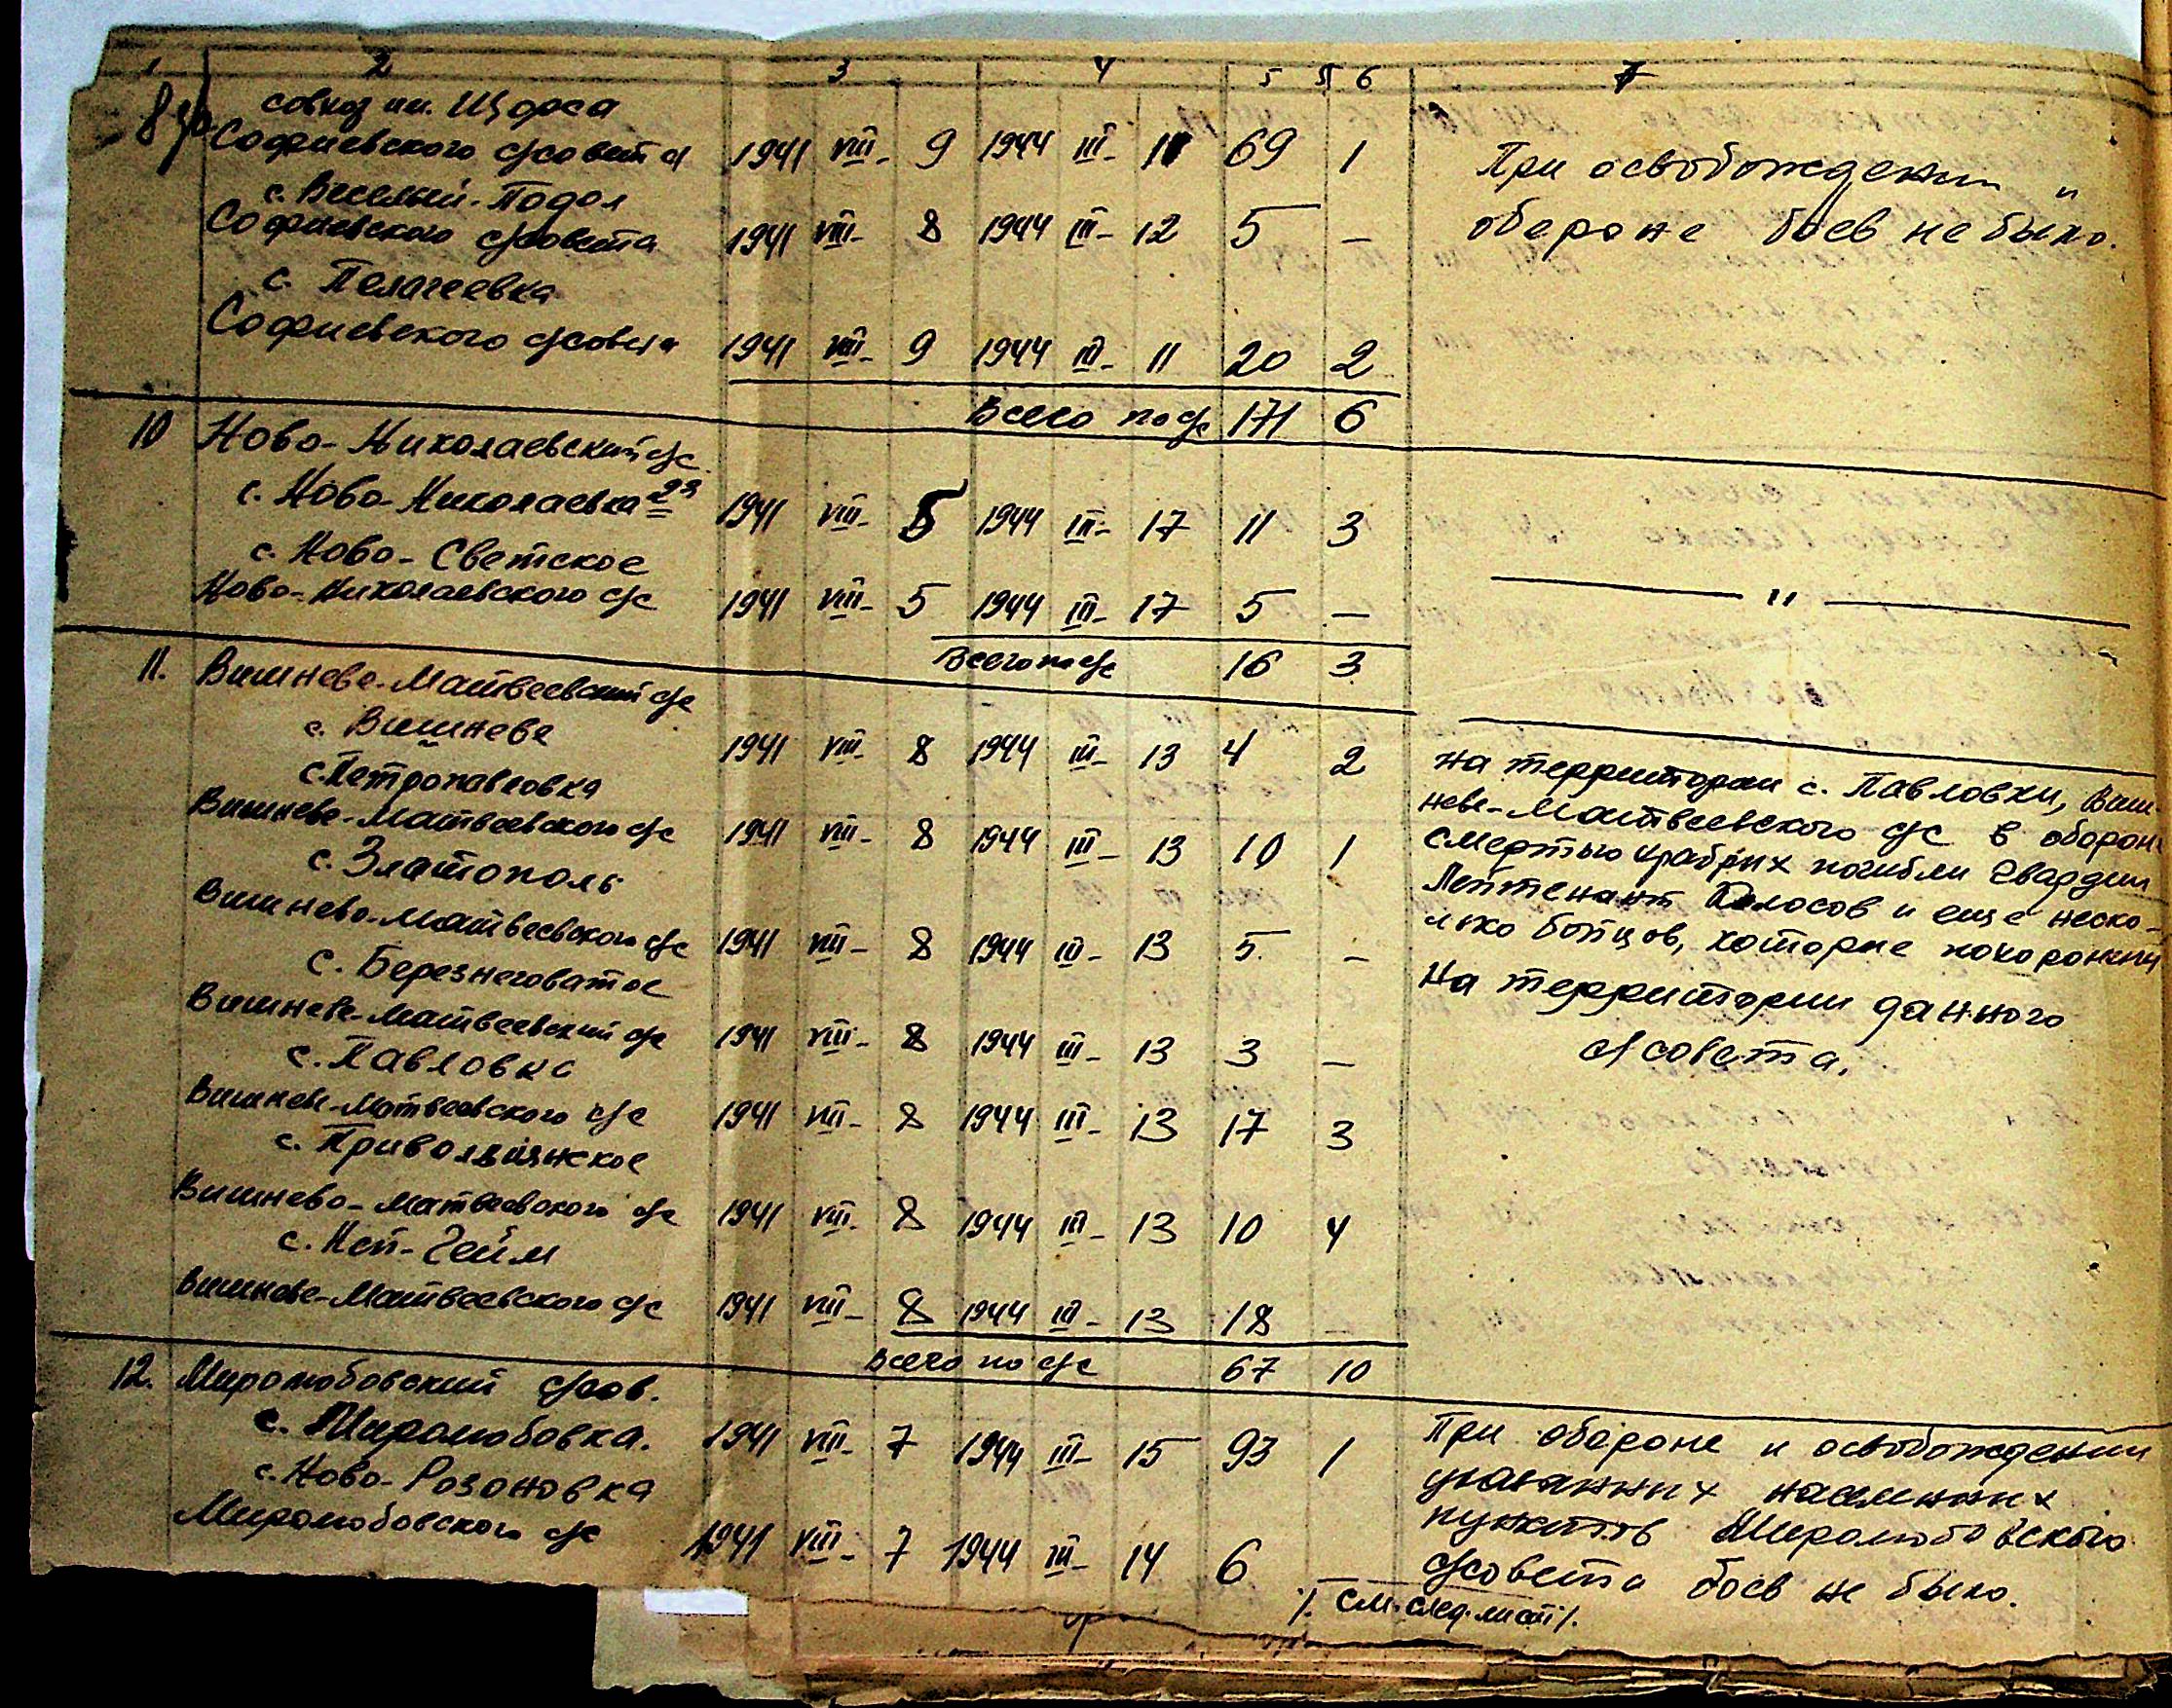 1 2 3 4 5 6 7
совхоз им. Щорса
Софиевского с/совета 1941 VIII- 9 1944 III- 11 69 1
с. Веселый-Подол
Софиевского с/совета 1941 VIII- 8 1944 III- 12 5 —
с. Пелагеевка
Софиевского с/совета 1941 VIII- 9 1944 III- 11 20 2
При освобождении и
обороне боев не было.
Всего по с/с 171 6
10 Ново-Николаевский с/с
с. Ново-Николаевка 23 1941 VIII- 5 1944 III- 17 11 3
с. Ново-Светское
Ново-Николаевского с/с 1941 VIII- 5 1944 III- 17 5 —
— " —
Всего по с/с 16 3
11. Вишнево-Матвеевский с/с
с. Вишнево 1941 VIII- 8 1944 III- 13 4 2
с. Петропавловка
Вишнево-Матвеевского с/с 1941 VIII- 8 1944 III- 13 10 1
с. Златополь
Вишнево-Матвеевского с/с 1941 VIII- 8 1944 III- 13 5 —
с. Березнеговатое
Вишнево-Матвеевский с/с 1941 VIII- 8 1944 III- 13 3 —
с. Павловка
Вишнево-Матвеевского с/с 1941 VIII- 8 1944 III- 13 17 3
с.
Вишнево-Матвеевского с/с 1941 VIII- 8 1944 III- 13 10 4
с. Ней-Гейм
Вишнево-Матвеевского с/с 1941 VIII- 8 1944 III- 13 18 —
На территории с. Павловки, Виш-
нево-Матвеевского с/с в оборон
смертью храбрых погибли Гвардии
Лейтенант Колосов и еще неско-
лько бойцов, которые похоронены
На территории данного
с/совета.
Всего по с/с 67 10
12. Миролюбовский с/сов.
с. Миролюбовка. 1941 VIII- 7 1944 III- 15 93 1
с. Ново-Розоновка
Миролюбовского с/с 1941 VIII- 7 1944 III- 14 6
При обороне и освобождении
указанных населенных
пунктов Миролюбовского
с/совета боев не было.
/. см. след. лист /.